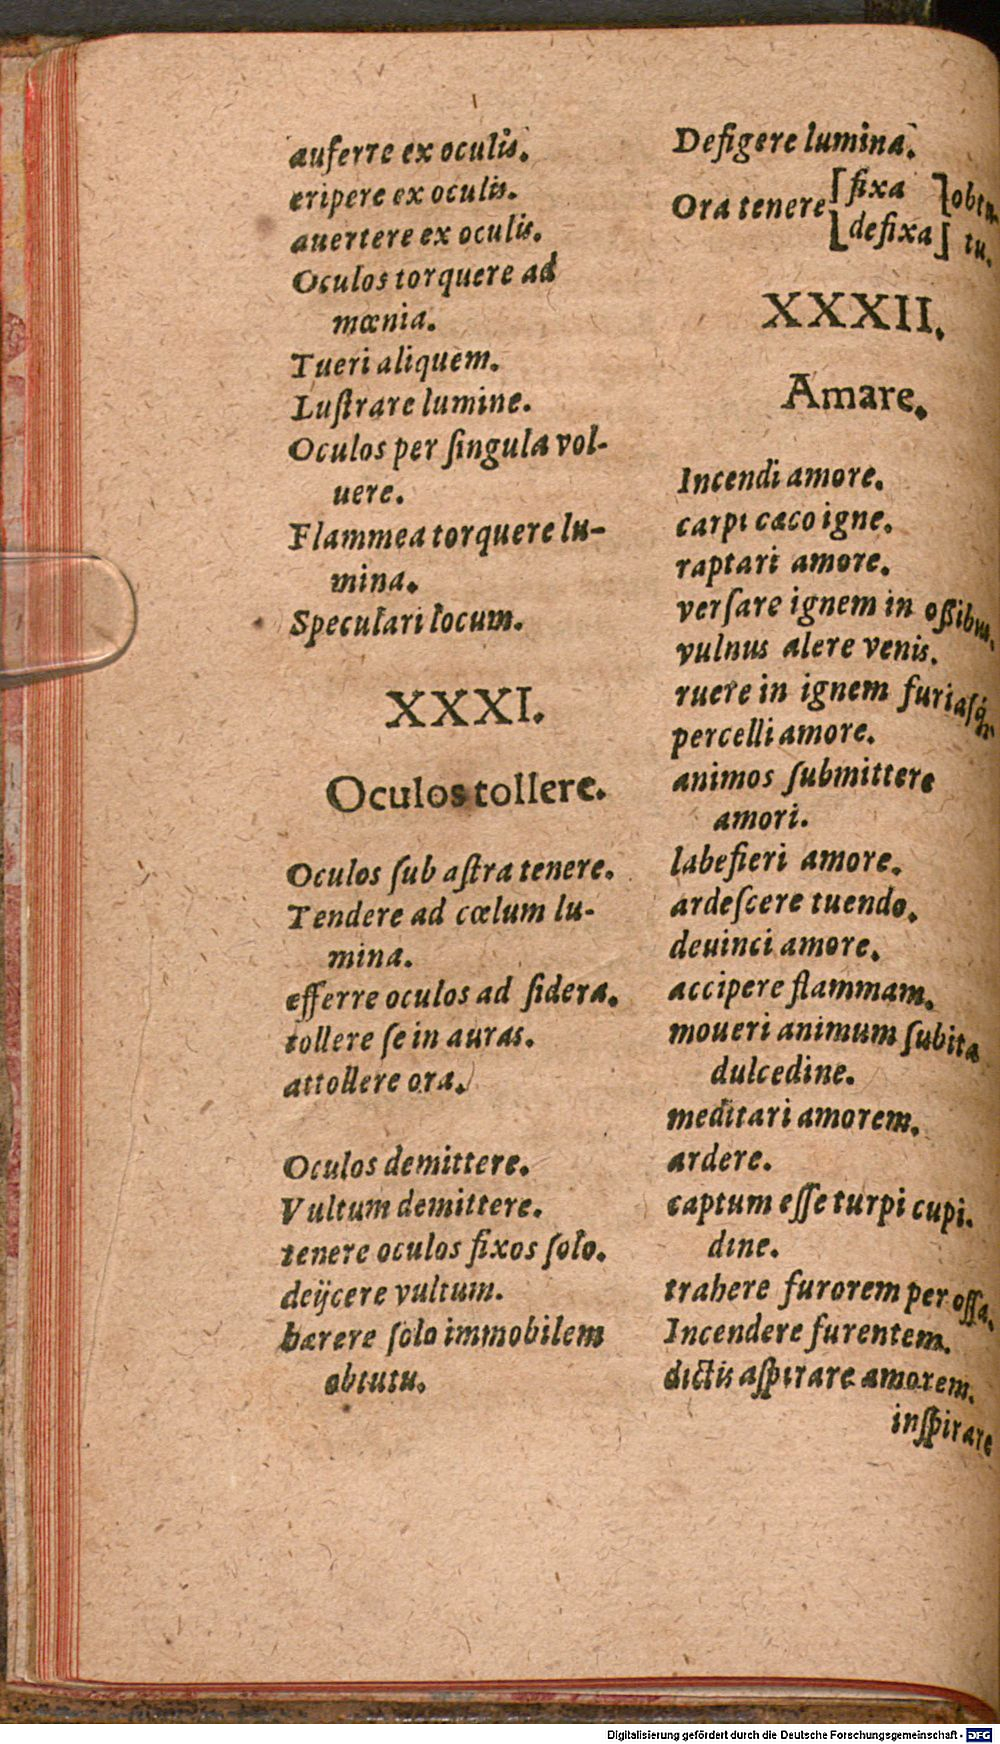 auferre ex oculis.
eripere ex oculis.
auertere ex oculis.
Oculos torquere ad
mœnia.
Tueri aliquem.
Luſtrare lumine.
Oculos per ſingula vol-
uere.
Flammea torquere lu-
mina.
Speculari locum.
XXXI.
Oculos tollere.
Oculos ſub aſtra tenere.
Tendere ad cœlum lu-
mina.
efferre oculos ad ſidera.
tollere ſe in auras.
attollere ora.
Oculos demittere.
Vultum demittere.
tenere oculos fixos ſolo.
deijcere vultum.
hærere ſolo immobilem
obtutu.
Defigere lumina.
Ora tenere [fixa ] obtu-
[defixa] tu.
XXXII.
Amare.
Incendi amore.
carpi cæco igne.
raptari amore.
verſare ignem in oßibus.
vulnus alere venis.
ruere in ignem furiaſq́;
percelli amore.
animos ſubmittere
amori.
labefieri amore.
ardeſcere tuendo.
deuinci amore.
accipere flammam.
moueri animum ſubita
dulcedine.
meditari amorem.
ardere.
captum eſſe turpi cupi-
dine.
trahere furorem per oſſa.
Incendere furentem.
dictis aſpirare amorem.
inſpirare
Digitalisierung gefördert durch die Deutsche Forschungsgemeinschaft - DFG